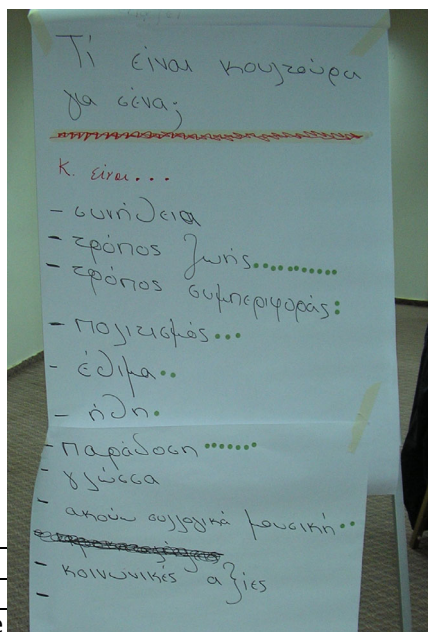 Τί είναι κουλτούρα
για σένα;
Κ. είναι...
- συνήθεια
- τρόπος ζωής
- τρόπος συμπεριφοράς
- πολιτισμός
- έθιμα
- ήθη
- παράδοση
- γλώσσα
- ακούω συλλογικά μουσική
- κοινωνικές αξίες
-